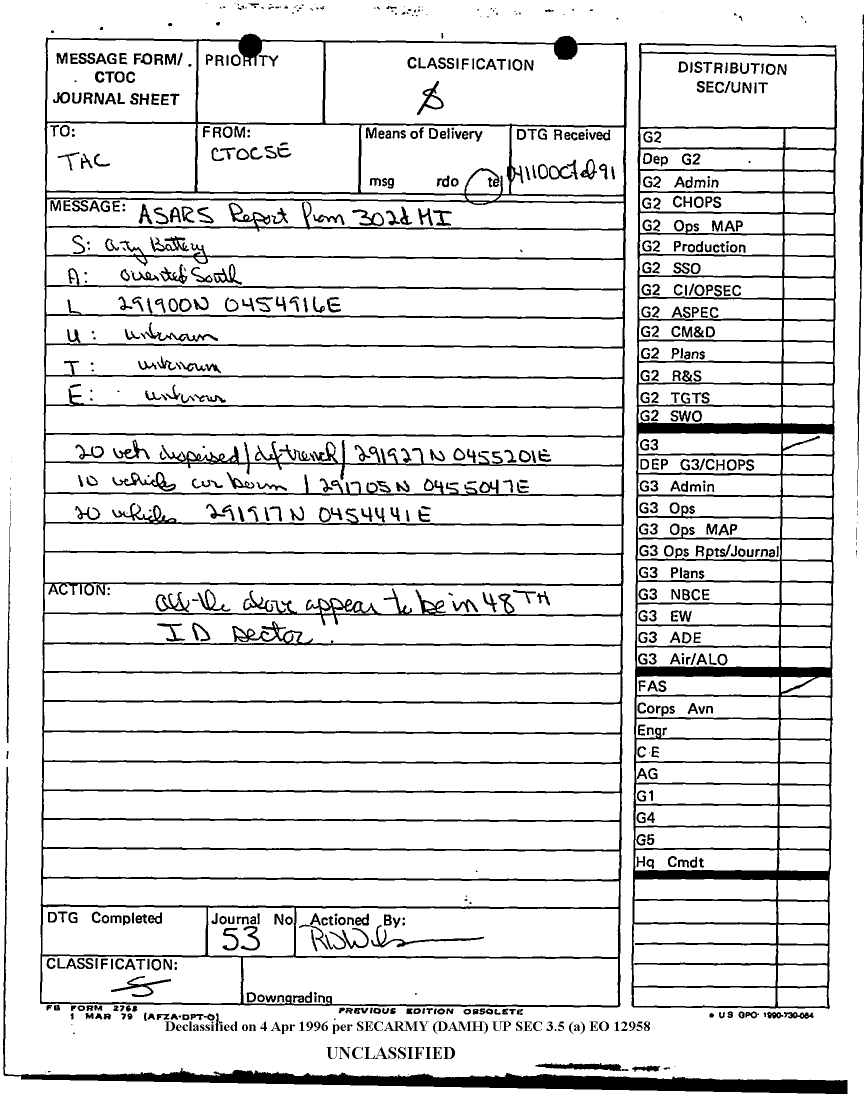 MESSAGE FORM/.
CTOC
JOURNAL SHEET
PRIORITY
CLASSIFICATION
S
TO:
TAC
FROM:
CTOCSE
Means of Delivery
msg rdo tel
DTG Received
041100CFeb91
MESSAGE: ASARS Report from 302d MI
S: arty Battery
A: oriented South
L 291900N 0454916E
U: unknown
T: unknown
E: unknown
20 veh dispersed/def trench/291927N 0455201E
10 vehicles cir berm / 291705N 0455047E
20 vehicles 291917N 0454441E
ACTION: all the above appear to be in 48TH
ID sector.
DTG Completed
Journal No
53
Actioned By:
CLASSIFICATION:
S
Downgrading
FB FORM 2768
1 MAR 79 (AFZA-DPT-O)
PREVIOUS EDITION OBSOLETE
DISTRIBUTION
SEC/UNIT
G2
Dep G2
G2 Admin
G2 CHOPS
G2 Ops MAP
G2 Production
G2 SSO
G2 CI/OPSEC
G2 ASPEC
G2 CM&D
G2 Plans
G2 R&S
G2 TGTS
G2 SWO
G3
DEP G3/CHOPS
G3 Admin
G3 Ops
G3 Ops MAP
G3 Ops Rpts/Journal
G3 Plans
G3 NBCE
G3 EW
G3 ADE
G3 Air/ALO
FAS
Corps Avn
Engr
C E
AG
G1
G4
G5
Hq Cmdt
* U S GPO: 1990-730-064
Declassified on 4 Apr 1996 per SECARMY (DAMH) UP SEC 3.5 (a) EO 12958
UNCLASSIFIED